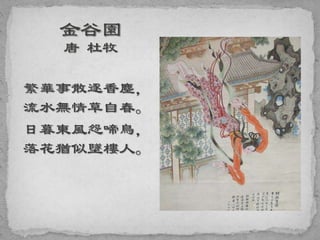 金谷園
唐 杜牧
繁華事散逐香塵,
流水無情草自春。
日暮東風怨啼鳥,
落花猶似墜樓人。